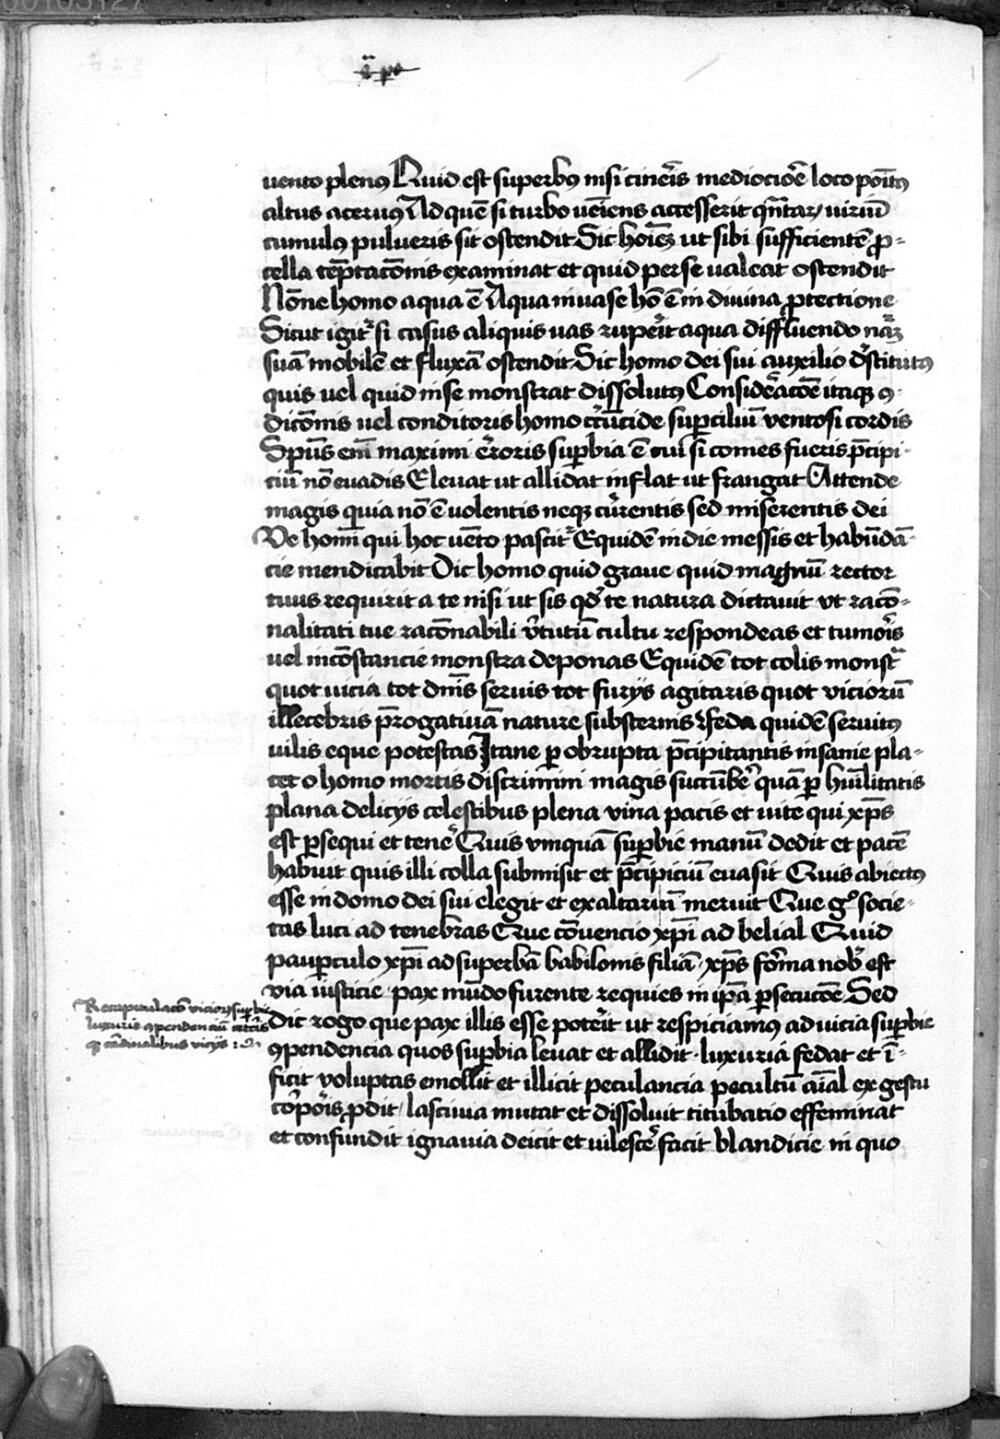 uento plenus Quid est superbus nisi cineris mediocr̄e loco poit̄us
altus aceruus Ad quē si turbo ueiens accesserit qn̄tar̄ uiriū
cumulus pulueris sit ostendit Sic hoiēz ut sibi sufficientē pro-
cella tēptacōnis examinat et quid per se ualeat ostendit
Nōne homo aqua ē Aqua in uase hō ē in diuina protectione
Sicut igit̄ si casus aliquis uas ruperit aqua diffluendo nāz
suā mobilē et fluxā ostendit Sic homo dei sui auxilio dēstitutus
quis uel quid in se monstrat dissolutus Consideracōe itaqz ꝯ-
dicōnis uel conditoris homo cōtucide supercilium uentosi cordis
Spūs em̄ maximi erroris supbia ē cui si comes fueris p̄cipi-
ciū nō euadis Eleuat ut allidat inflat ut frangat Attende
magis quia nō ē uolentis neqz currentis sed miserentis dei
Ve homī qui hoc uēto pascit̄ Equidē in die messis et habūdā-
cie mendicabit Dic homo quid graue quid magnū rector
tuus requirit a te nisi ut sis qd̄ te natura dictauit ut racō-
nalitati tue racōnabili v̄tutū cultu respondeas et tumoris
uel incōstancie monstra deponas Equidē tot colis monstra
quot uicia tot dn̄is seruis tot furijs agitaris quot viciorū
illecebris p̄rogatiuā nature substernis feda quidē seruitus
uilis eque potestas Itane p obrupta p̄cipitantis insanie pla-
cet o homo mortis discrimini magis succūbere quā p hūilitatis
plana delicijs celestibus plena vina pacis et uite qui xp̄s
est psequi et tenere Quis vnquā supbie manū dedit et pacē
habuit quis illi colla submisit et p̄cipiciū euasit Quis abiectus
esse in domo dei sui elegit et exaltari nō meruit Que g° socie-
tas luci ad tenebras Que cōuencio xp̄i ad belial Quid
paupculo xp̄i ad superbā babilonis filiā xp̄s forma nob̄ est
via iusticie pax mūdo furente requies in ip̄a psecucōe Sed
dic rogo que pax illis esse poterit ut respiciamus ad uicia supbie
ꝯpendencia quos supbia leuat et allidit luxuria fedat et ī-
ficit voluptas emollit et illicit peculancia pecultū aīal ex gestu
corporis prodit lasciuia mutat et dissoluit titubatio effeminat
et confundit ignauia deicit et uilescere facit blandicie in quo
Recapitulacō viciorū supbie
luxurie ꝯpendenciū ceteris
qz cardinalibus vicijs